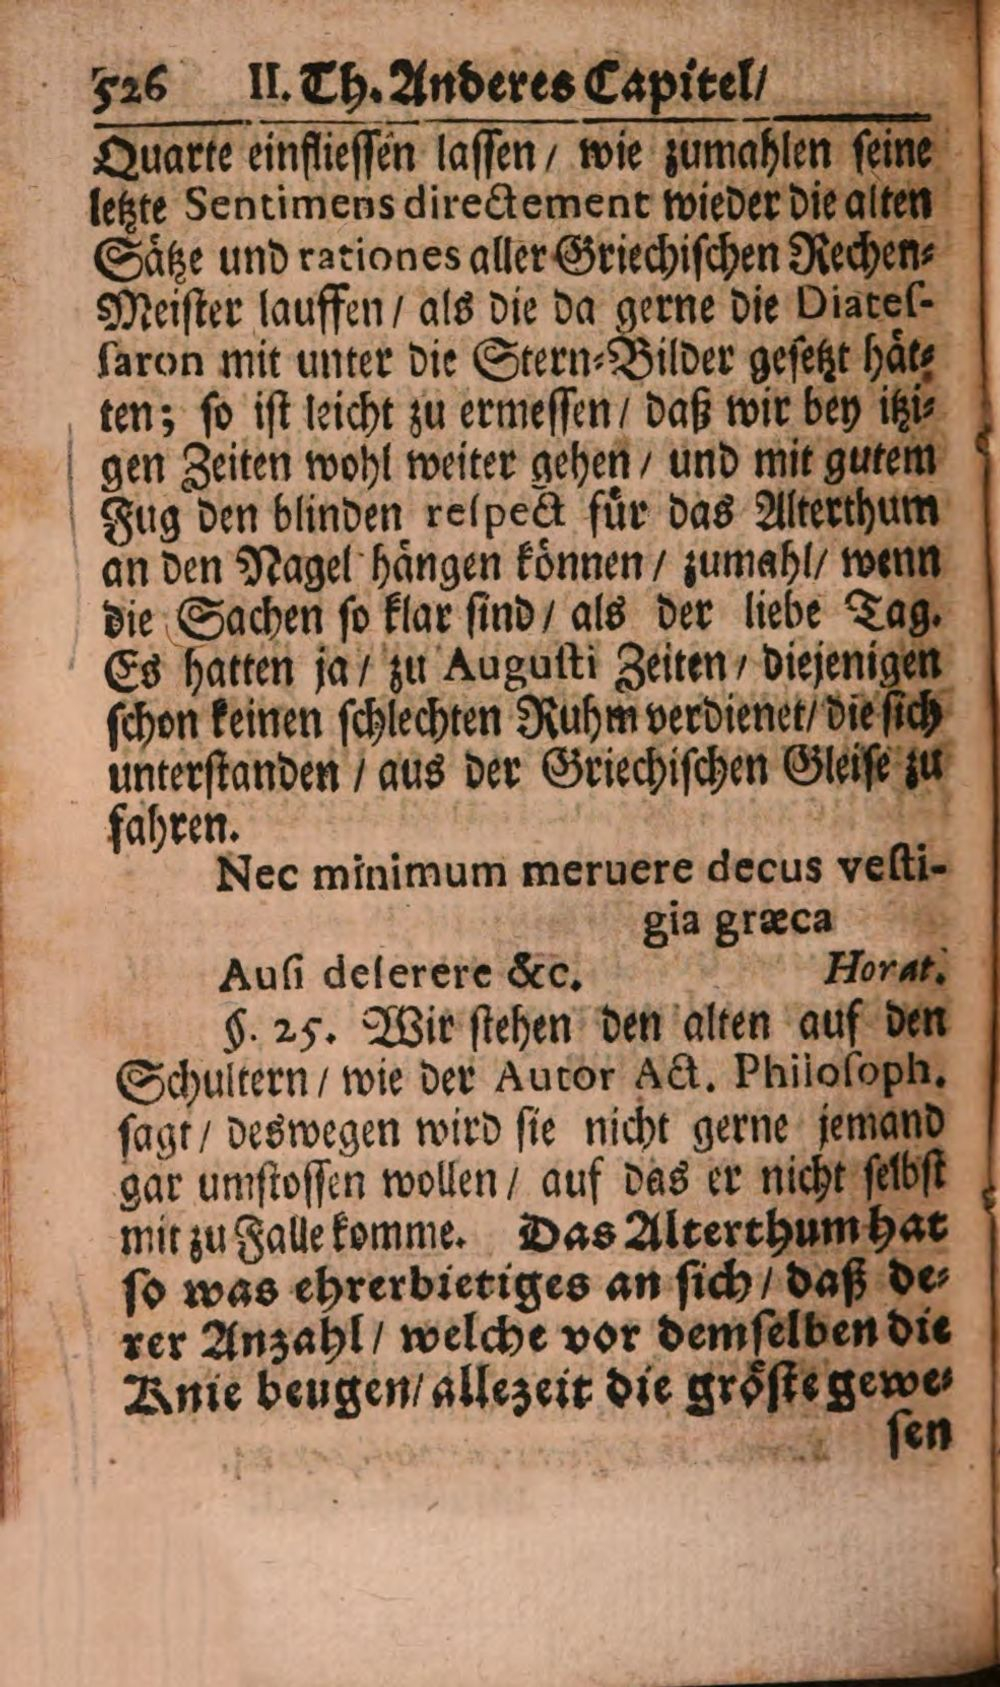 526 II. Th. Anderes Capitel/
Quarte einfliessen lassen/ wie zumahlen seine
letzte Sentimens directement wieder die alten
Sätze und rationes aller Griechischen Rechen-
Meister lauffen/ als die da gerne die Diates-
saron mit unter die Stern-Bilder gesetzt hät-
ten; so ist leicht zu ermessen/ daß wir bey itzi-
gen Zeiten wohl weiter gehen/ und mit gutem
Fug den blinden respect für das Alterthum
an den Nagel hängen können/ zumahl/ wenn
die Sachen so klar sind/ als der liebe Tag.
Es hatten ja/ zu Augusti Zeiten/ diejenigen
schon keinen schlechten Ruhm verdienet/ die sich
unterstanden/ aus der Griechischen Gleise zu
fahren.
Nec minimum meruere decus vesti-
gia græca
Ausi deserere &c. Horat.
§. 25. Wir stehen den alten auf den
Schultern/ wie der Autor Act. Philosoph.
sagt/ deswegen wird sie nicht gerne jemand
gar umstossen wollen/ auf das er nicht selbst
mit zu Falle komme. Das Alterthum hat
so was ehrerbietiges an sich/ daß de-
rer Anzahl/ welche vor demselben die
Knie beugen/ allezeit die gröste gewe-
sen